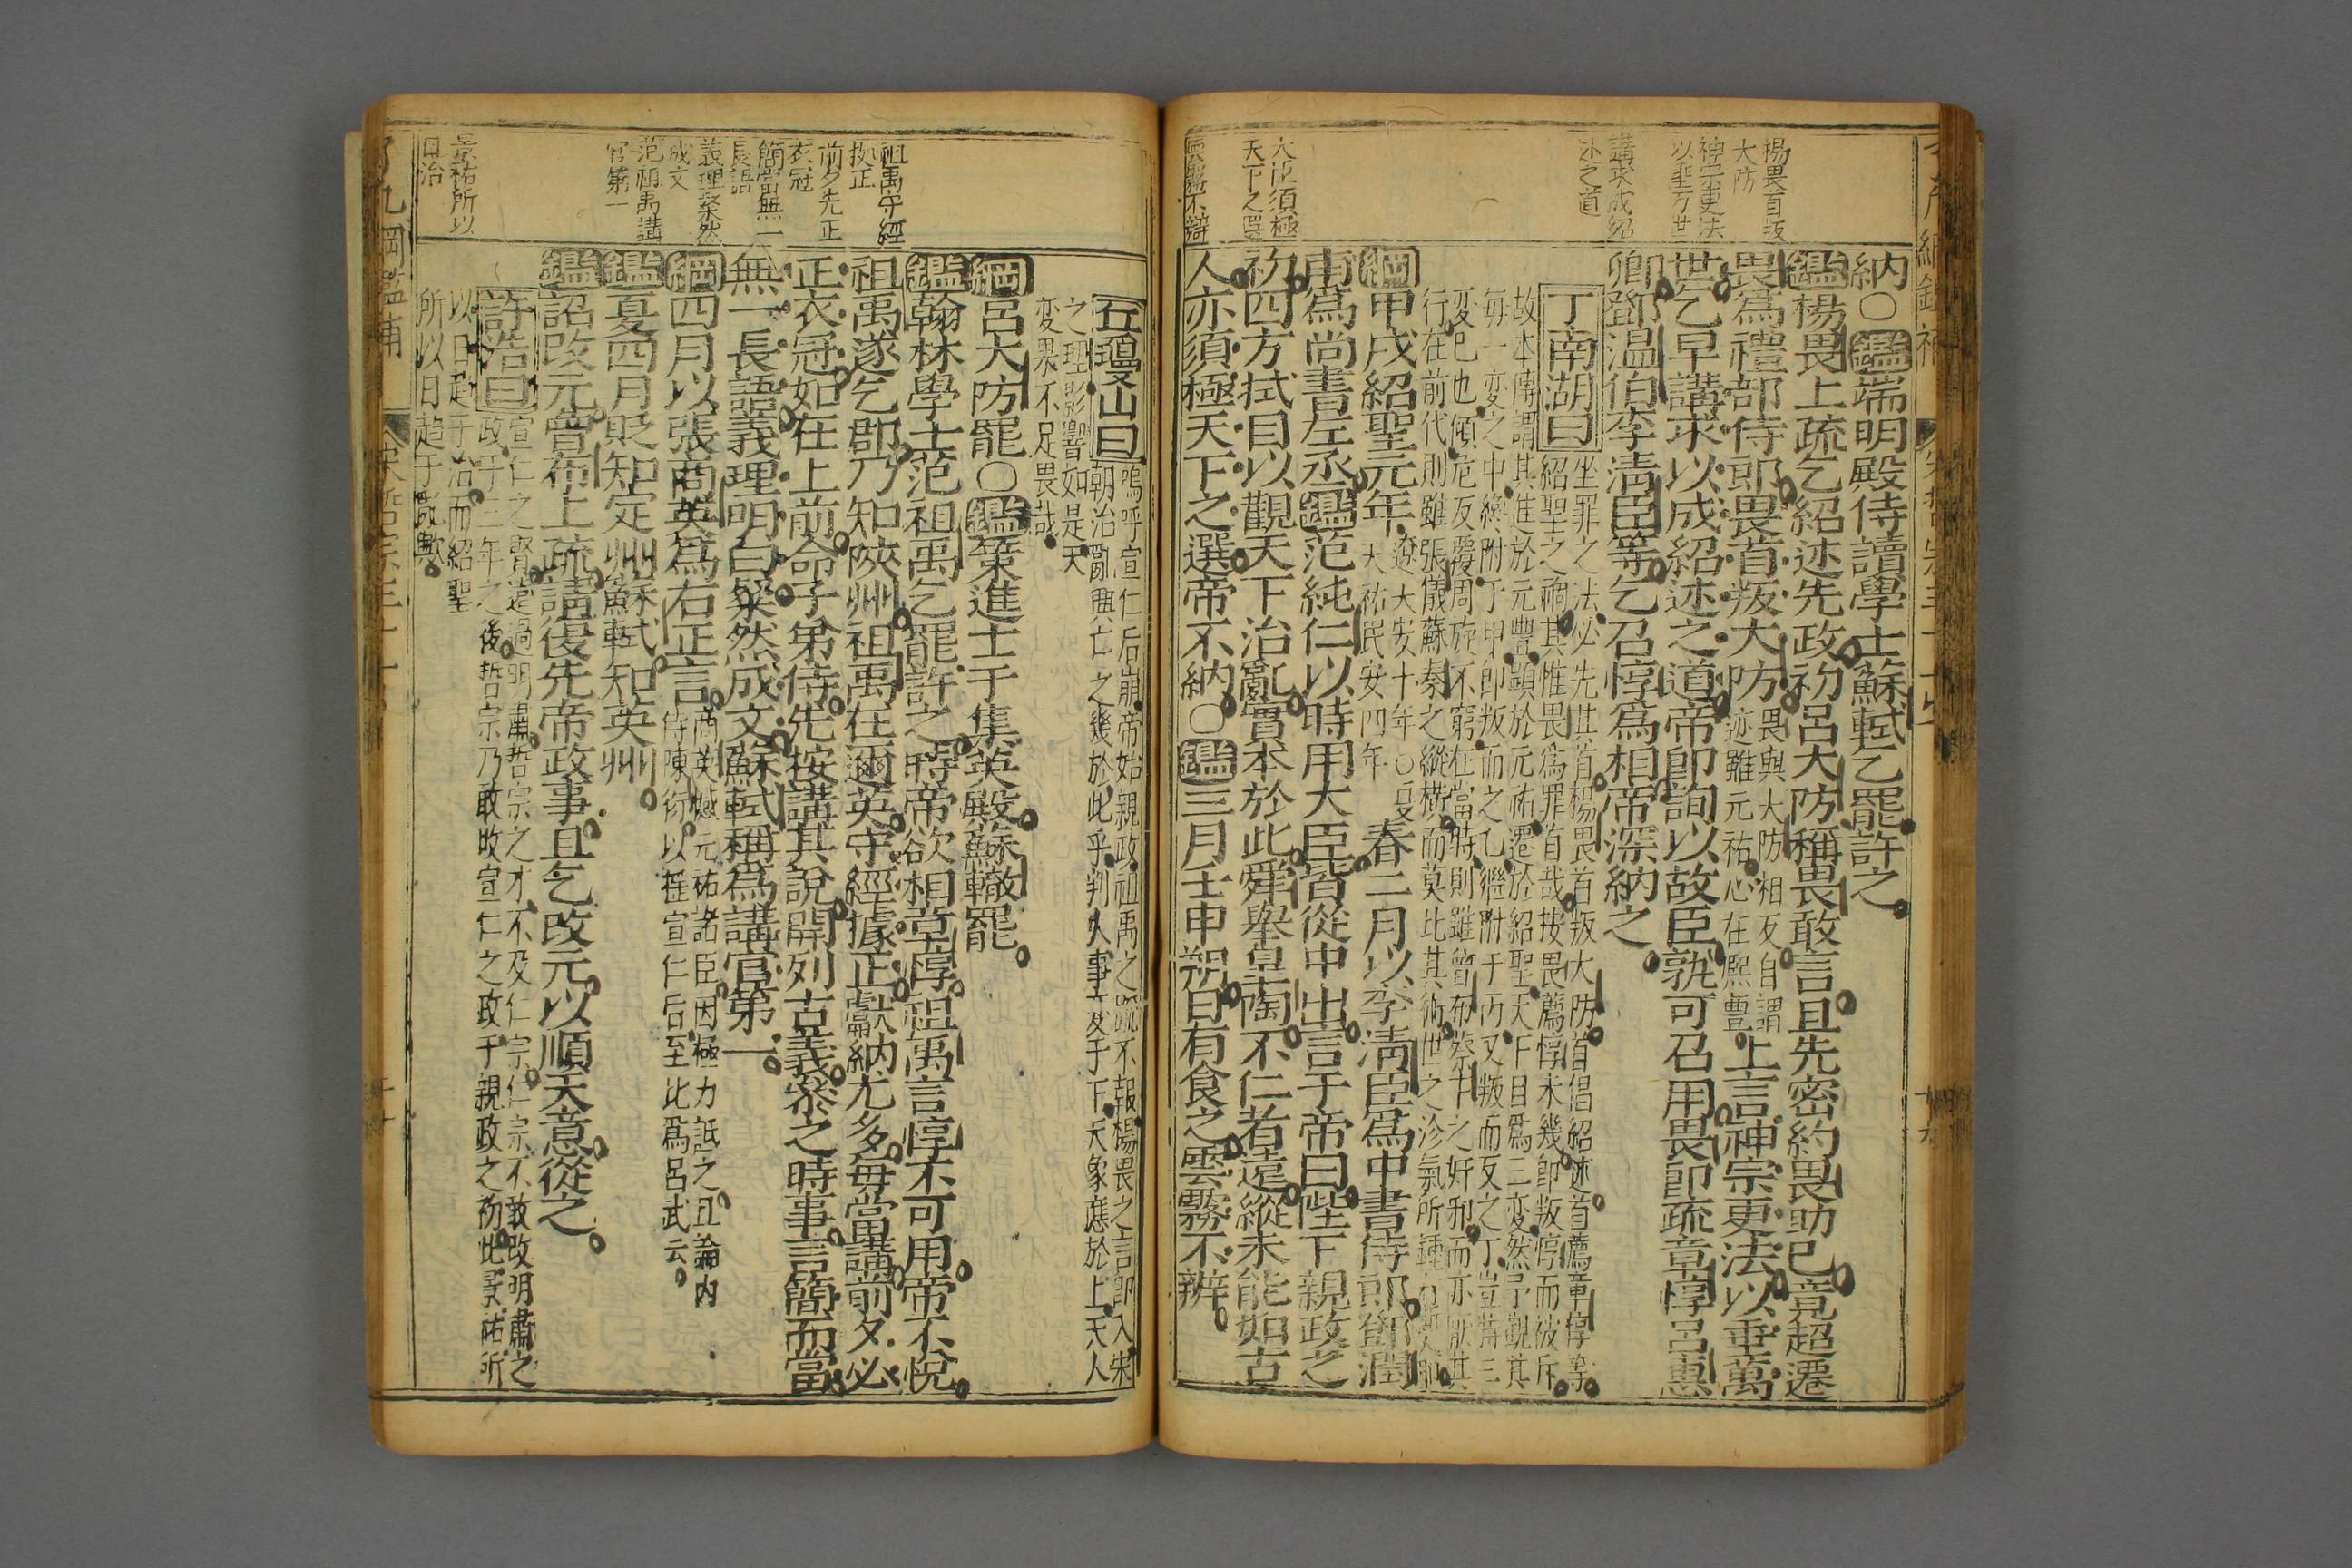 納○鑑端明殿侍讀學士蘇軾乞罷許之
鑑楊畏上疏乞紹述先政初呂大防稱畏敢言且先密約畏助己竟超遷
畏爲禮部侍郎畏首叛大防畏與大防相友自謂
迹雖元祐心在熙豐上言神宗更法以垂萬
世乞早講求以成紹述之道帝卽詢以故臣孰可召用畏卽疏章惇呂惠
卿鄧温伯李淸臣等乞召惇爲相帝深納之
丁南湖曰坐罪之法必先其首楊畏首叛大防首倡紹述首薦章惇等
紹聖之禍其惟畏爲罪首哉按畏薦惇未幾卽叛惇而彼斥
故本傳謂其進於元豐顯於元祐遷於紹聖天下目爲三変然予觀其
每一変之中纔附于甲卽叛而之乙繼附于丙又叛而友之丁豈葬三
変已也傾危反覆周旋不窮在當時則雖曾布蔡卞之奸邪而亦猒其
行在前代則雖張儀蘇秦之縱橫而莫比其術世之沴氣所鍾
綱甲戌紹聖元年遼大安十年○夏
天祐民安四年春二月以李淸臣爲中書侍郎鄧潤
甫爲尚書左丞鑑范純仁以時用大臣皆從中出言于帝曰陛下親政之
初四方拭目以觀天下治亂實本於此舜舉皐陶不仁者遠縱未能如古
人亦須極天下之選帝不納○鑑三月壬申朔日有食之雲霧不辨
楊畏首叛
大防
神宗更法
以垂万世
講求成紹
述之道
大臣須極
天下之選
雲霧不辯
丘瓊山曰嗚呼宣仁后崩帝始親政祖禹之疏不報楊畏之言卽入宋
朝治亂興亡之幾於此乎判人事変于下天象應於上天人
之理影響如是天
変果不足畏哉
綱呂大防罷○鑑策進士于集英殿蘇轍罷
鑑翰林學士范祖禹乞罷許之時帝欲相章惇祖禹言惇不可用帝不悅
祖禹遂乞郡乃知陝州祖禹在邇英守經據正獻納尤多每當講前夕必
正衣冠如在上前命子弟侍先按講其說開列古義參之時事言簡而當
無一長語義理明白粲然成文蘇軾稱爲講官第一
綱四月以張商英爲右正言商英憾元祐諸臣因極力詆之且論內
侍陳衍以摧宣仁后至比爲呂武云
鑑夏四月貶知定州蘇軾知英州
鑑詔改元曾布上疏請復先帝政事且乞改元以順天意從之
許浩曰宣仁之賢遠過明肅哲宗之才不及仁宗仁宗不敢改明肅之
政于三年之後哲宗乃敢改宣仁之政于親政之初此景祐所
以日趋于治而紹聖
所以日趋于亂歟
祖禹守經
拠正
前夕先正
衣冠
簡當無一
長語
義理粲然
成文
范祖禹講
官第一
景祐所以
日治